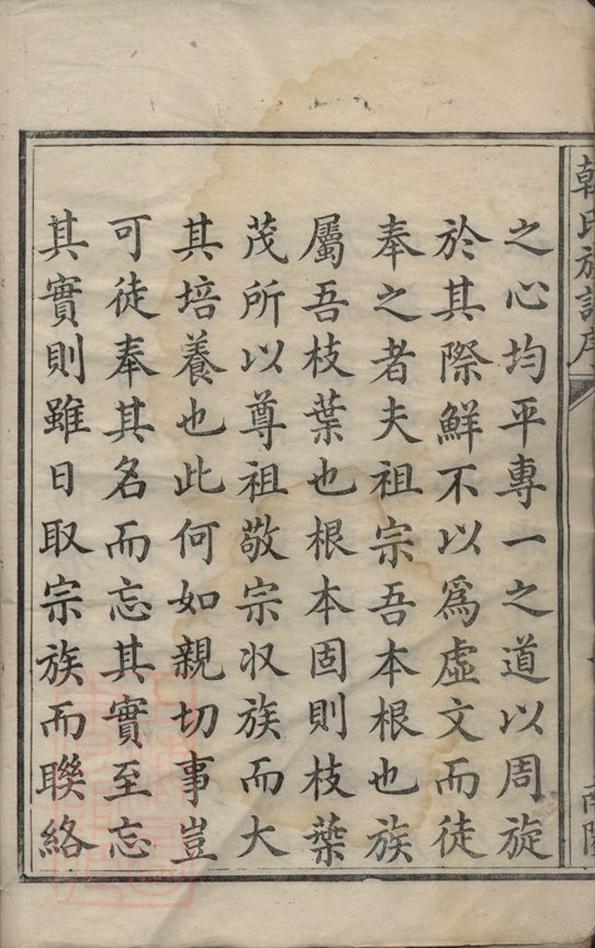 韓氏族譜序
之心均平專一之道以周旋
於其際鮮不以爲虛文而徒
奉之者夫祖宗吾本根也族
屬吾枝葉也根本固則枝葉
茂所以尊祖敬宗収族而大
其培養也此何如親切事豈
可徒奉其名而忘其實至忘
其實則雖日取宗族而聯絡